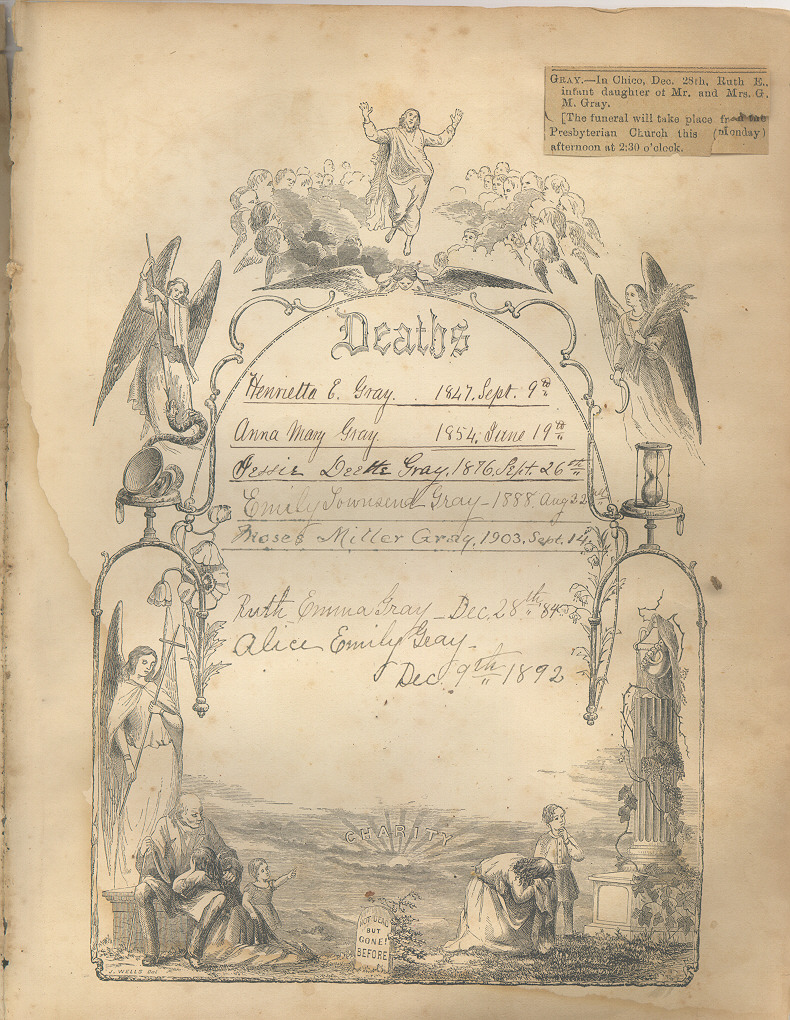 GRAY.—In Chico, Dec. 28th, Ruth E.,
infant daughter of Mr. and Mrs. G.
M. Gray.
[The funeral will take place from the
Presbyterian Church this (Monday)
afternoon at 2:30 o'clock.
Deaths
Henrietta E. Gray. 1847. Sept. 9th
Anna Mary Gray 1854. June 19th
Jessie Deette Gray. 1876. Sept. 26th
Emily Townsend Gray - 1888. Aug 22
Moses Miller Gray. 1903. Sept. 14
Ruth Emma Gray - Dec. 28th 84
Alice Emily Gray
Dec. 9th 1892
CHARITY
NOT DEAD
BUT
GONE!
BEFORE
J. WELLS Del